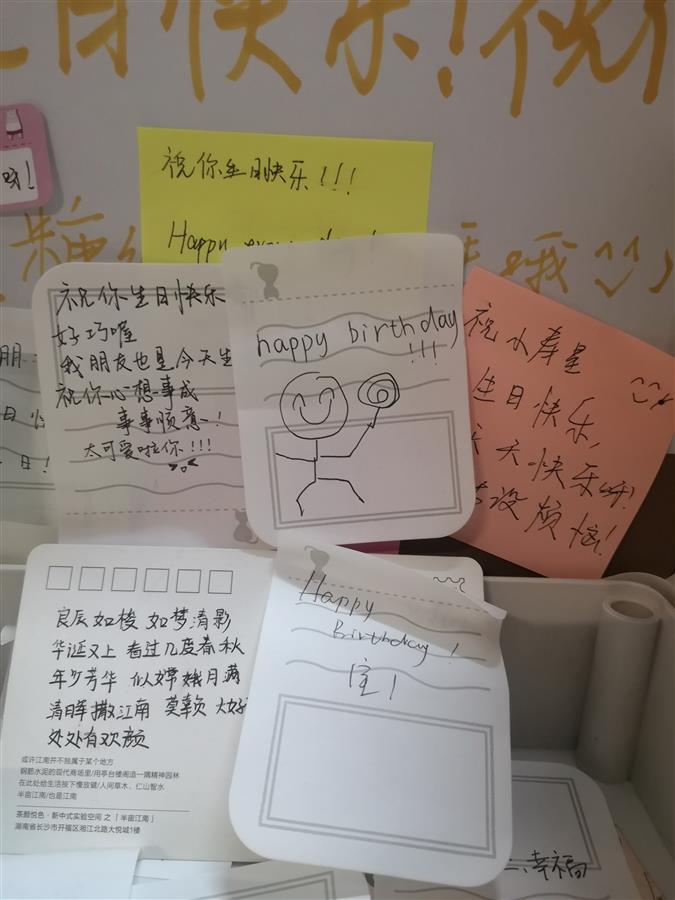 日快乐!祝
呀!
祝你生日快乐!!!
Happy
哦
祝你生日快乐
好巧喔
我朋友也是今天生
祝你心想事成
事事顺意!
太可爱啦你!!!
happy birthday
!!!
祝小寿星
生日快乐,
天天快乐呀!
没烦恼!
朋
日快
日!
良辰如梭 如梦清影
华诞又上 看过几度春秋
年少芳华 似嫦娥月满
清晖撒江南 莫辜负大好
处处有欢颜
或许江南并不独属于某个地方
钢筋水泥的现代商场里/用亭台楼阁造一隅精神园林
在此处给生活按下慢放键/人间草木、仁山智水
半亩江南/也是江南
茶颜悦色·新中式实验空间 之「半亩江南」
湖南省长沙市开福区湘江北路大悦城1楼
Happy
Birthday!
幸福